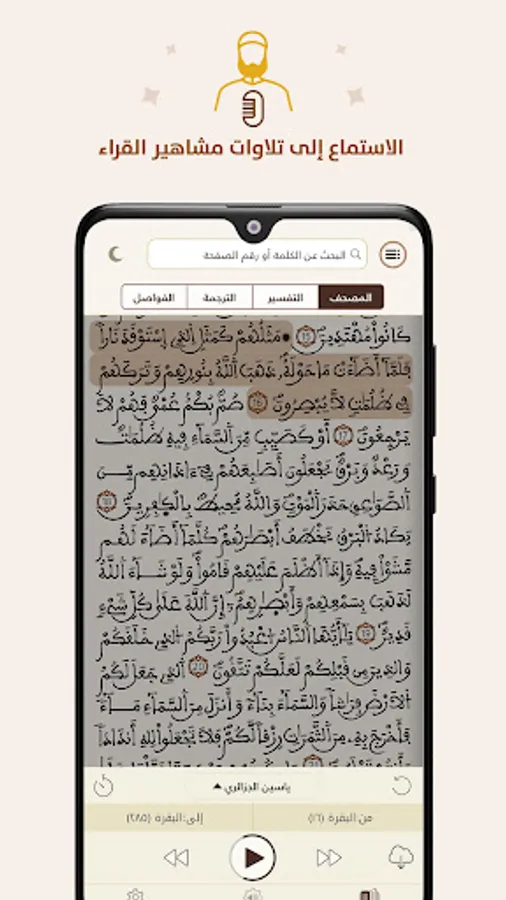 الاستماع إلى تلاوات مشاهير القراء
البحث عن الكلمة أو رقم الصفحة
المصحف التفسير الترجمة الفواصل
كَانُواْ مُهْتَدِينَ 15 مَثَلُهُمْ كَمَثَلِ اِ۬لذِے اِ۪سْتَوْقَدَ نَاراٗ
فَلَمَّآ أَضَآءَتْ مَا حَوْلَهُۥ ذَهَبَ اَ۬للَّهُ بِنُورِهِمْ وَتَرَكَهُمْ
فِے ظُلُمَٰتٖ لَّا يُبْصِرُونَ 16 صُمُّۢ بُكْمٌ عُمْيٞ فَهُمْ لَا
يَرْجِعُونَ 17 أَوْ كَصَيِّبٖ مِّنَ اَ۬لسَّمَآءِ فِيهِ ظُلُمَٰتٞ
وَرَعْدٞ وَبَرْقٞ يَجْعَلُونَ أَصَٰبِعَهُمْ فِےٓ ءَاذَانِهِم مِّنَ
اَ۬لصَّوَٰعِقِ حَذَرَ اَ۬لْمَوْتِ وَاللَّهُ مُحِيطُۢ بِالْكٰ۪فِرِينَ 18
يَكَادُ اُ۬لْبَرْقُ يَخْطَفُ أَبْصَٰرَهُمْ كُلَّمَآ أَضَآءَ لَهُم
مَّشَوْاْ فِيهِ وَإِذَآ أَظْلَمَ عَلَيْهِمْ قَامُواْ وَلَوْ شَآءَ اَ۬للَّهُ
لَذَهَبَ بِسَمْعِهِمْ وَأَبْصٰ۪رِهِمُۥٓ إِنَّ اَ۬للَّهَ عَلَىٰ كُلِّ شَےْءٖ
قَدِيرٞ 19 يَٰٓأَيُّهَا اَ۬لنَّاسُ اُ۟عْبُدُواْ رَبَّكُمُ اُ۬لذِے خَلَقَكُمْ
وَالذِينَ مِن قَبْلِكُمْ لَعَلَّكُمْ تَتَّقُونَ 20 اَ۬لذِے جَعَلَ لَكُمُ
اُ۬لَارْضَ فِرَٰشاٗ وَالسَّمَآءَ بِنَآءٗ وَأَنزَلَ مِنَ اَ۬لسَّمَآءِ مَآءٗ
فَأَخْرَجَ بِهِۦ مِنَ اَ۬لثَّمَرَٰتِ رِزْقاٗ لَّكُمْ فَلَا تَجْعَلُواْ لِلهِ أَندَاداٗ
ياسين الجزائري
من البقرة (١٦) إلى: البقرة (٢٨٥)